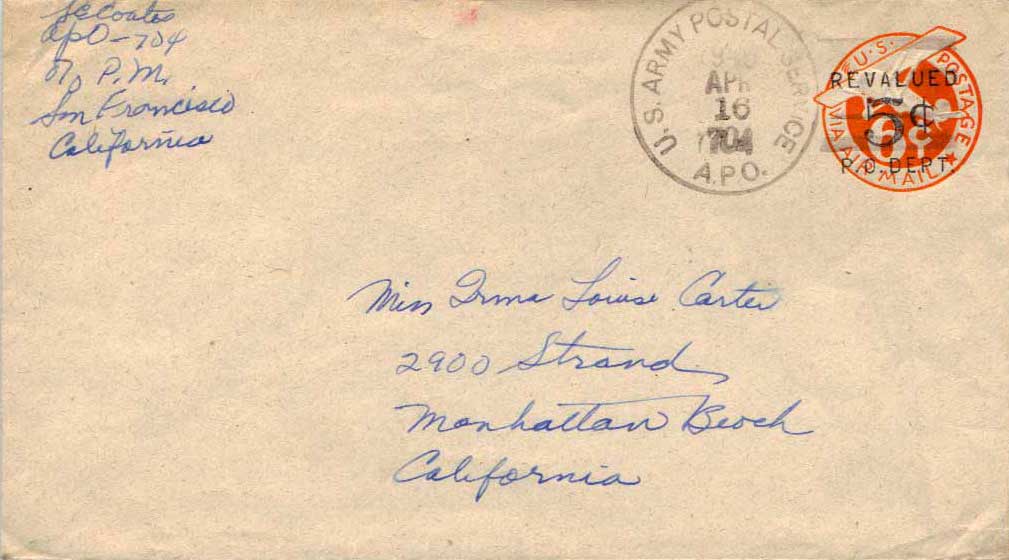 SE Coates
APO - 704
% P.M.
San Francisco
California
U.S. ARMY POSTAL SERVICE
APR
16
704
A.P.O.
U.S. POSTAGE
REVALUED
5¢
6¢
P.O. DEPT.
VIA AIR MAIL
Miss Irma Louise Carter
2900 Strand
Manhattan Beach
California